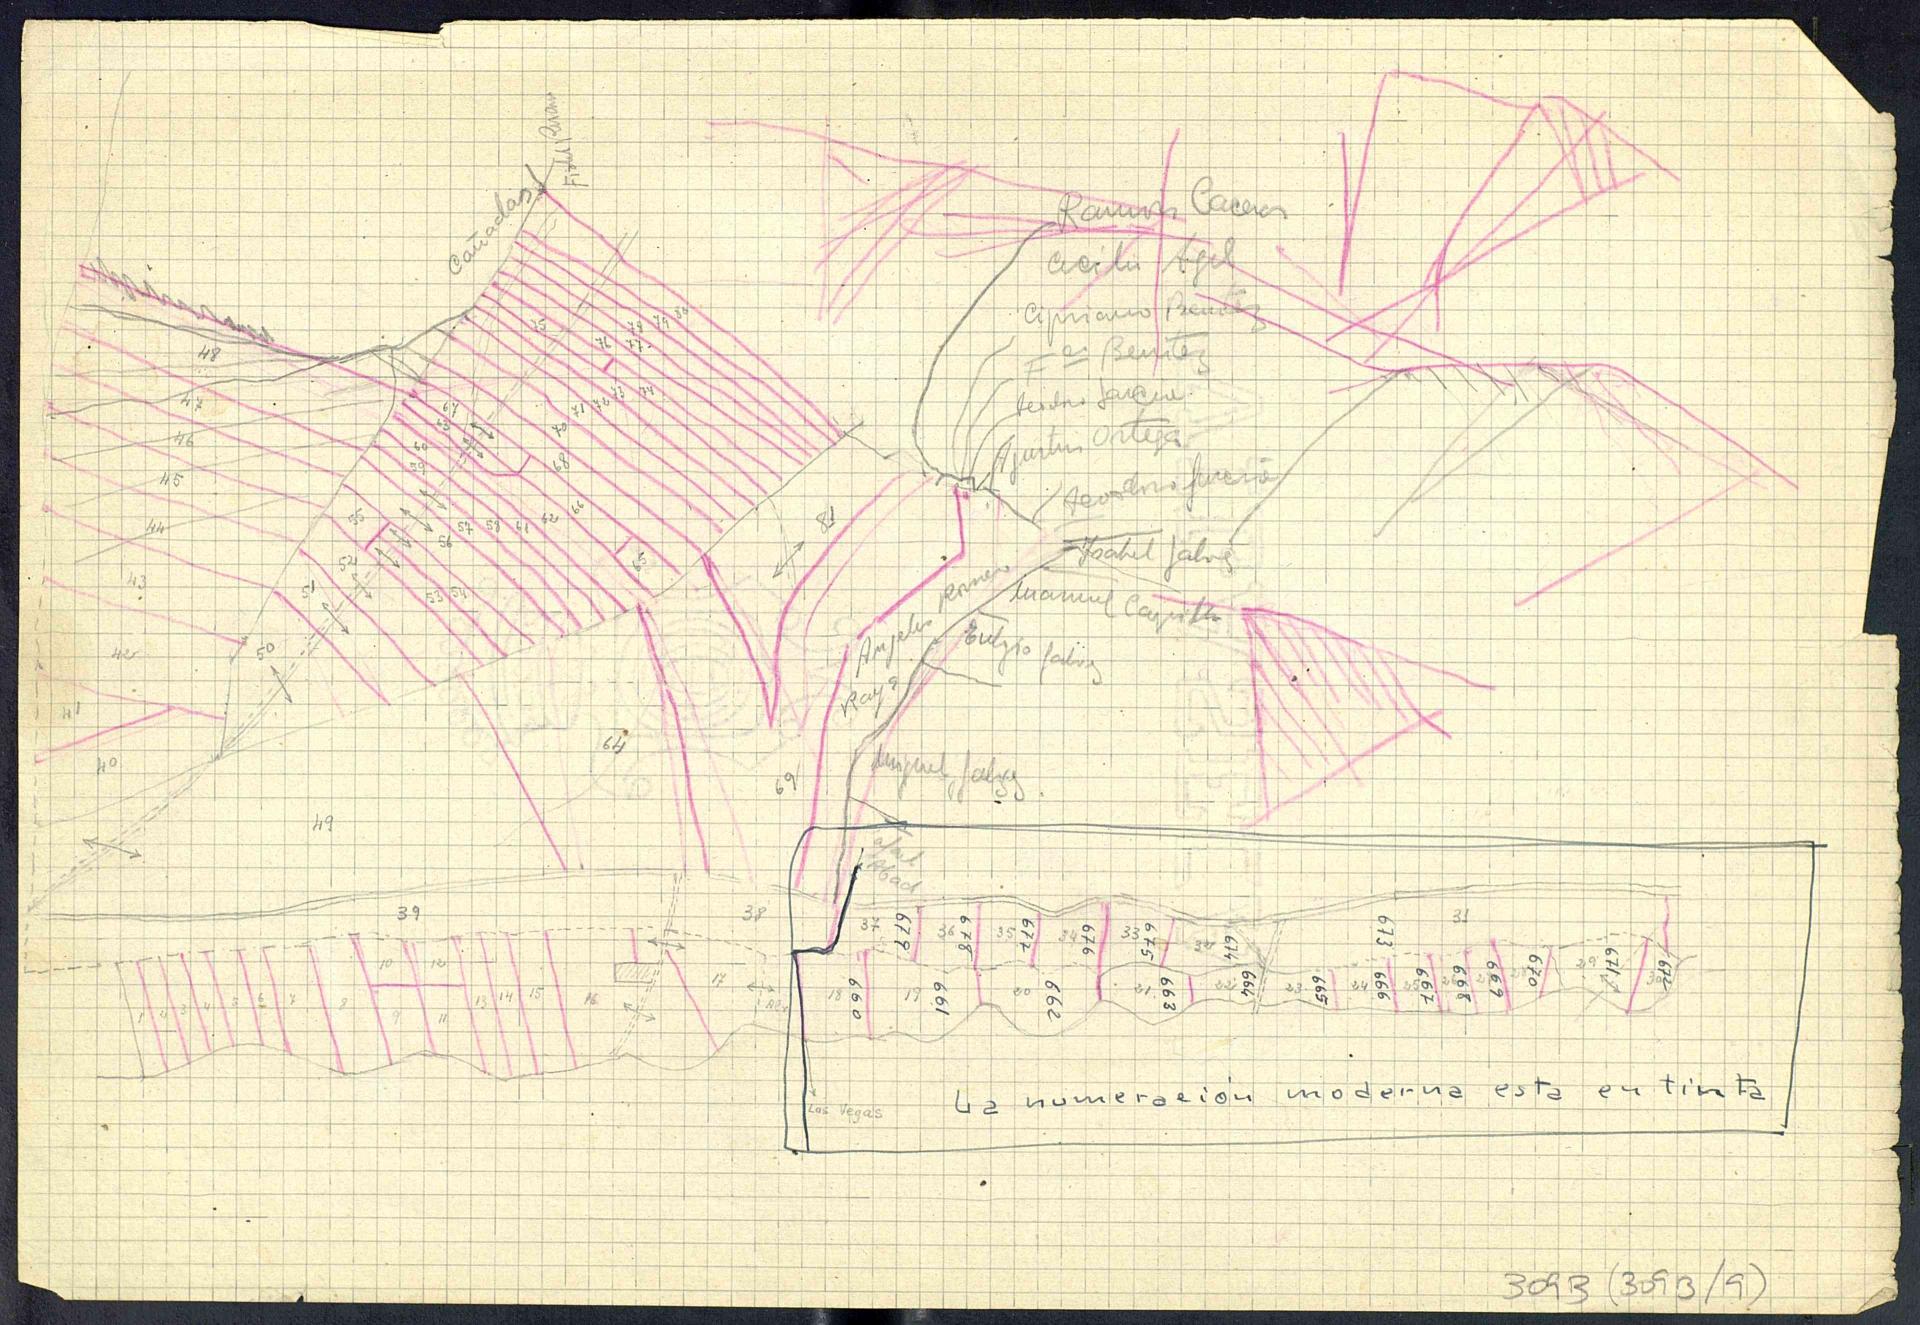 Cañadas
Ramon Caceres
Cecilio Agel
Cipriano Benitez
Fco Benitez
Agustin Ortega
Teodoro Garcia
Ysabel Galvez
Manuel
Angeles Romero
Raya
Eulogio Galvez
Miguel Galvez
Abad
80
79
78
77
76
75
74
73
72
71
70
68
67
63
60
59
48
47
46
45
44
43
42
41
40
55
52
51
50
53 54
56
57 58 61 62 66
65
81
64
69
49
39
38
37 679 36 678 35 677 34 676 33 675 32 674 673 31
10 12
1 2 3 4 5 6 7 8 9 11 13 14 15 16 17
18 660 19 661 20 662 21 663 22 664 23 665 24 666 25 667 26 668 27 669 28 670 29 671 30 672
Las Vegas
La numeración moderna esta en tinta
3093 (3093/9)